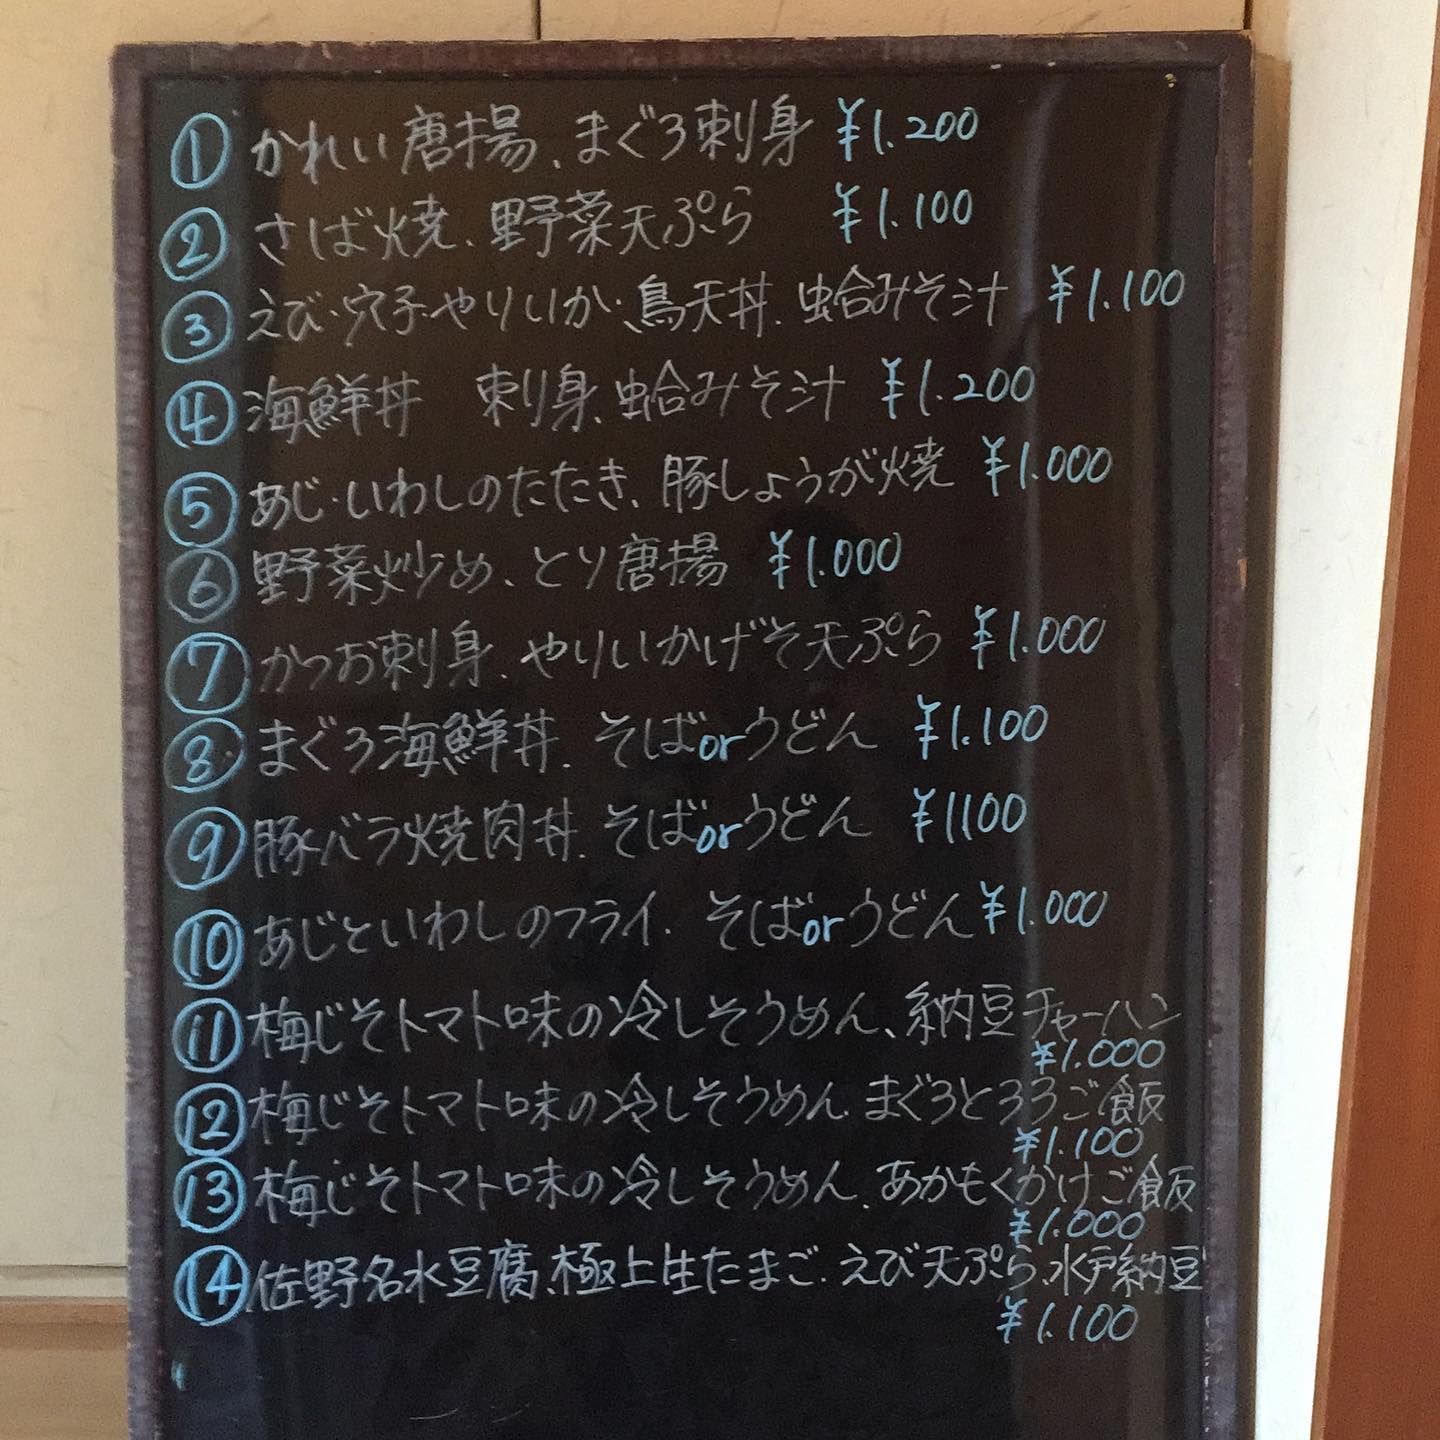 ① かれい唐揚、まぐろ刺身 ¥1.200
② さば焼、野菜天ぷら ¥1.100
③ えび・穴子・やりいか・鳥天丼、蛤みそ汁 ¥1.100
④ 海鮮丼 刺身、蛤みそ汁 ¥1.200
⑤ あじ・いわしのたたき、豚しょうが焼 ¥1.000
⑥ 野菜炒め、とり唐揚 ¥1.000
⑦ かつお刺身、やりいかげそ天ぷら ¥1.000
⑧ まぐろ海鮮丼、そばorうどん ¥1.100
⑨ 豚バラ焼肉丼、そばorうどん ¥1100
⑩ あじといわしのフライ、そばorうどん ¥1.000
⑪ 梅じそトマト味の冷しそうめん、納豆チャーハン
¥1.000
⑫ 梅じそトマト味の冷しそうめん、まぐろとろろご飯
¥1.100
⑬ 梅じそトマト味の冷しそうめん、あかもくかけご飯
¥1.000
⑭ 佐野名水豆腐、極上生たまご、えび天ぷら、水戸納豆
¥1.100